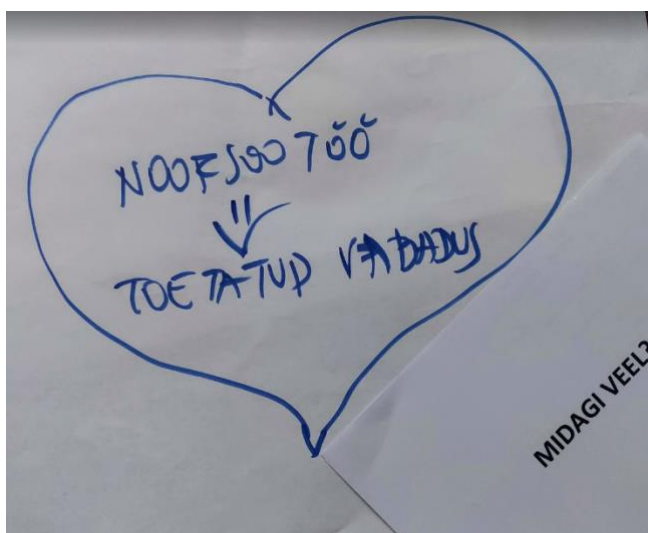 NOORSOOTÖÖ
TOETATUD VABADUS
MIDAGI VEEL?